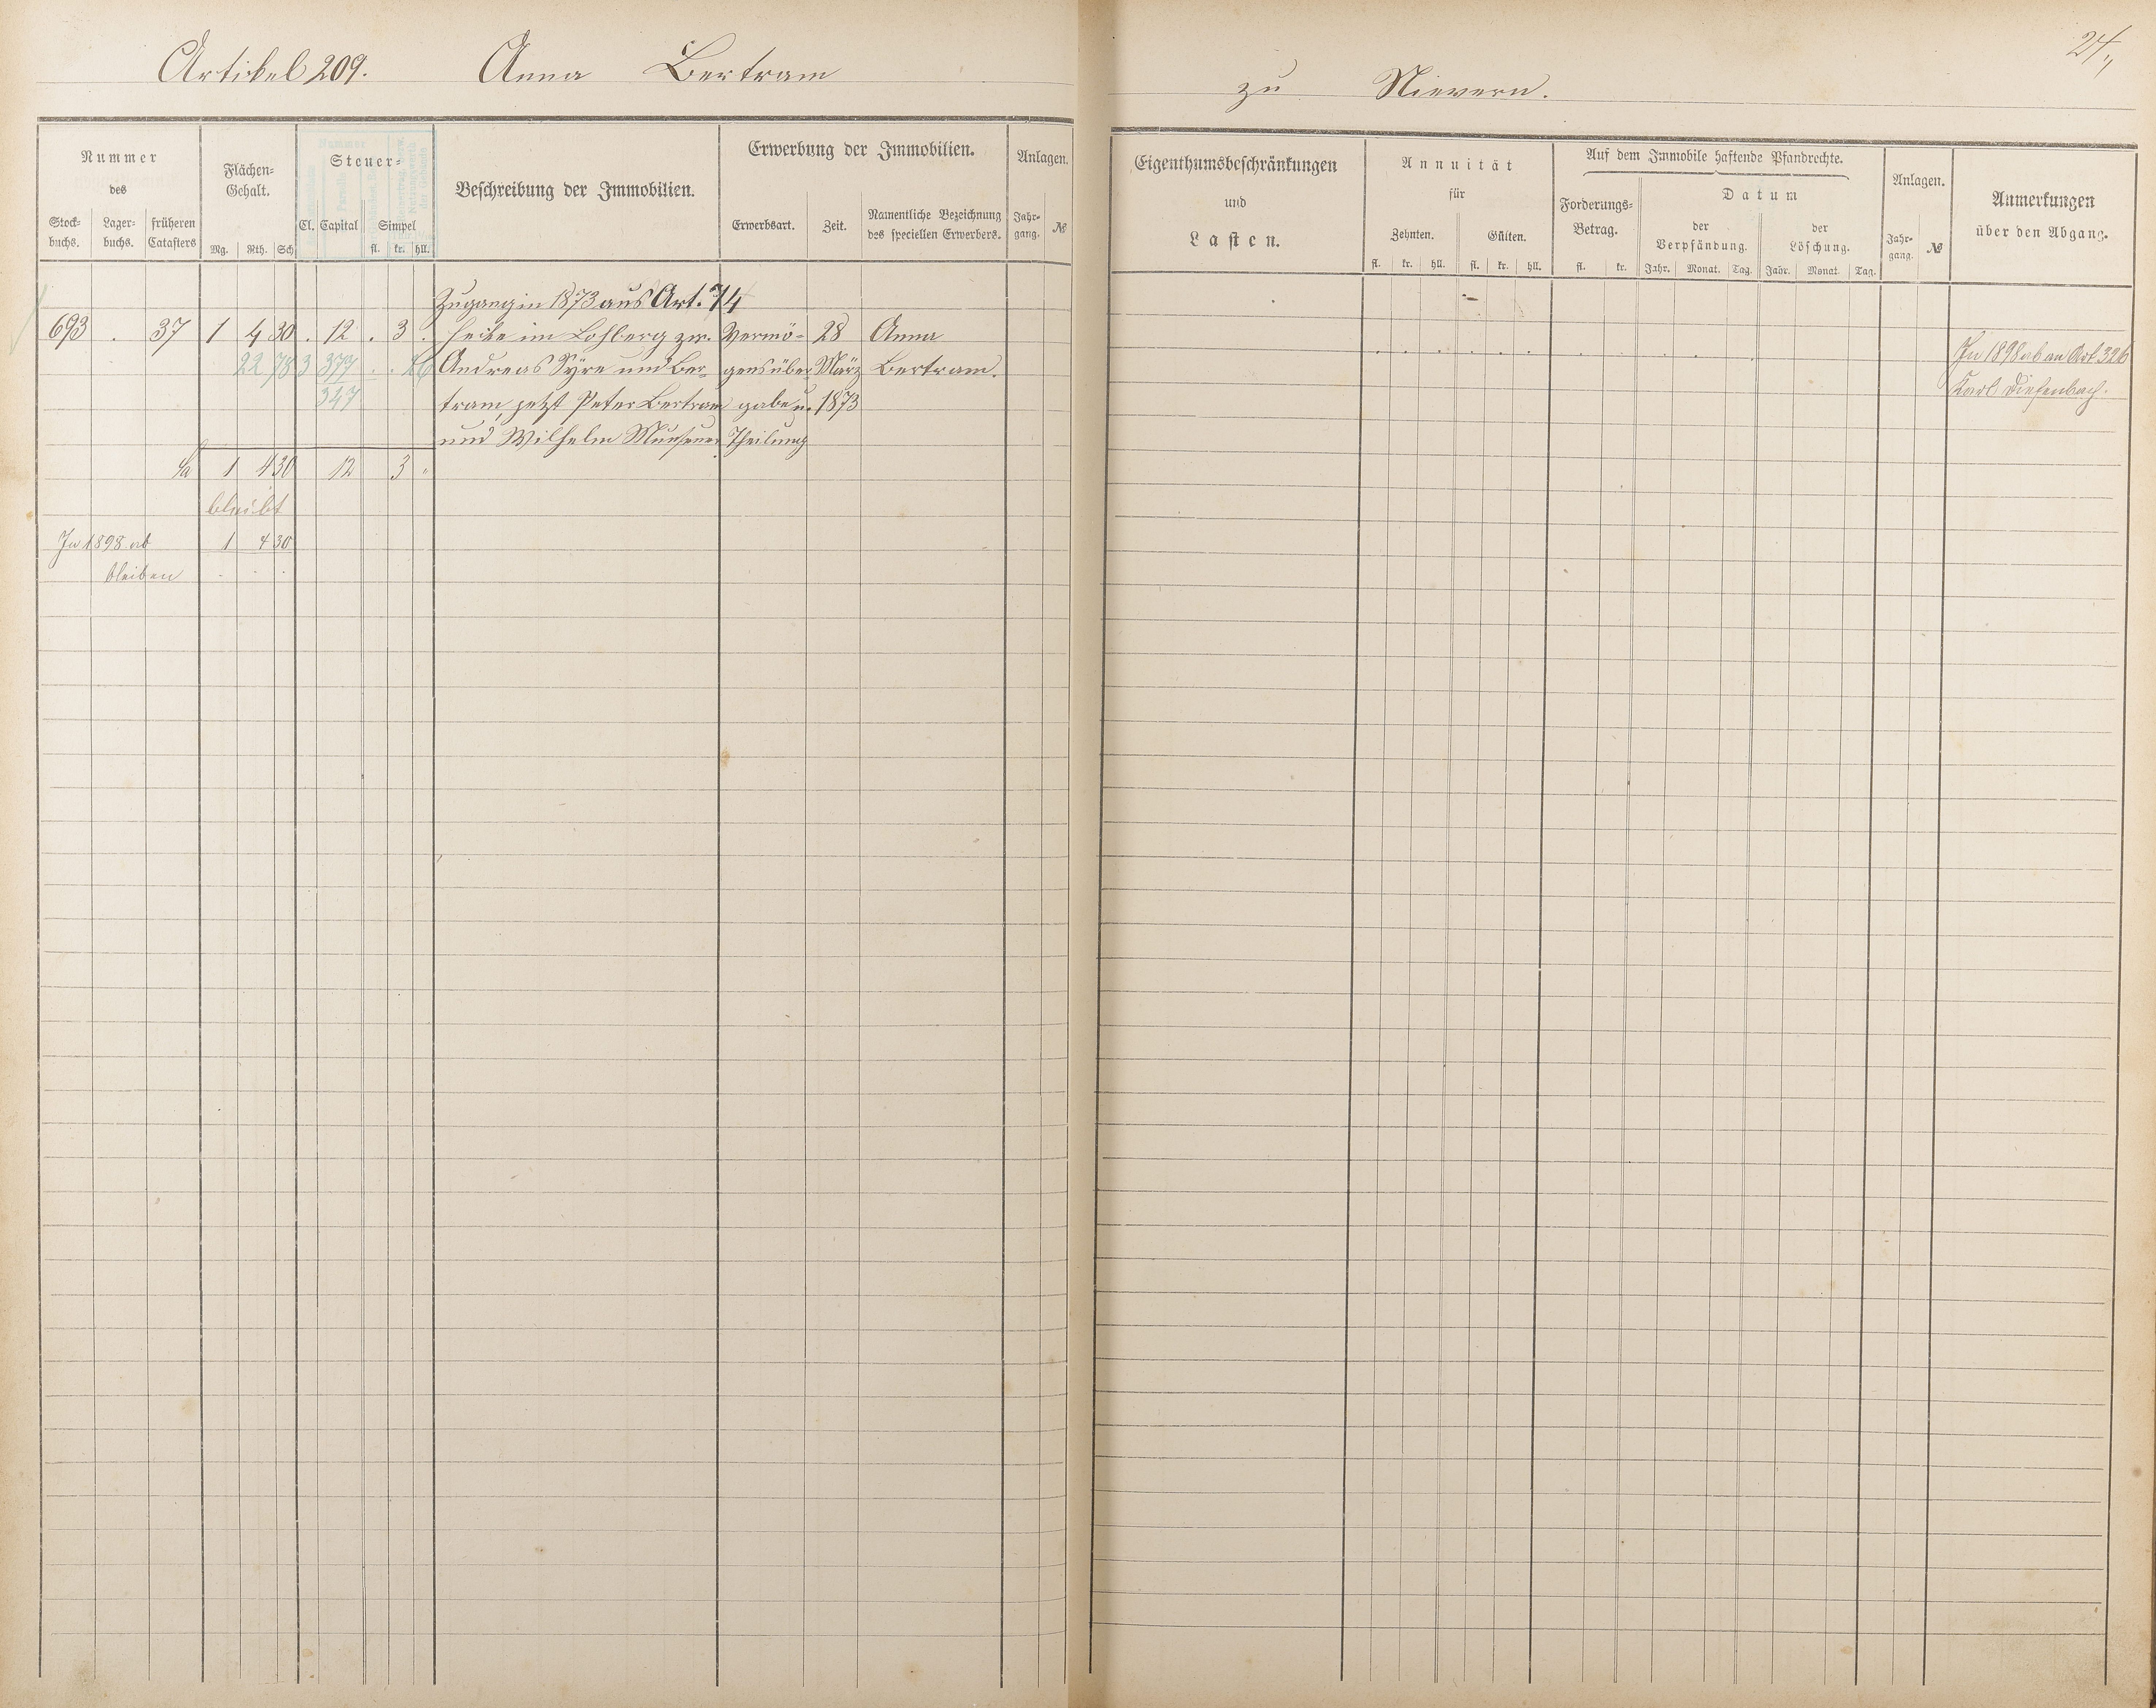 24
Artikel 209. Anna Bertram zu Nievern.
Nummer
des
Stock-
buchs.
Lager-
buchs.
früheren
Catasters
Flächen-
Gehalt.
Mg. Rth. Sch
Steuer-
Cl. Capital
Simpel
fl. kr. hll.
Beschreibung der Immobilien.
Erwerbung der Immobilien.
Erwerbsart.
Zeit.
Namentliche Bezeichnung
des speciellen Erwerbers.
Anlagen.
Jahr-
gang.
№
Zugang in 1873 aus Art. 74
693 . 37 1 4 30 . 12 . 3 . Hecke im Lohberg zw. Vermö- 28 Anna
22 78 3 377 . . 26 Andreas Syre und Ber- gensüber März Bertram.
347 tram, jetzt Peter Bertram gabe u. 1873
und Wilhelm Theilung
Sa 1 4 30 12 3 "
bleibt
In 1898 ab 1 4 30
bleiben . . .
Eigenthumsbeschränkungen
und
Lasten.
Annuität
für
Zehnten.
Gülten.
fl. kr. hll. fl. kr. hll.
Auf dem Immobile haftende Pfandrechte.
Forderungs-
Betrag.
fl. kr.
Datum
der
Verpfändung.
Jahr. Monat. Tag.
der
Löschung.
Jahr. Monat. Tag.
Anlagen.
Jahr-
gang.
№
Anmerkungen
über den Abgang.
In 1898 ab an Art 326
Karl Diefenbach.